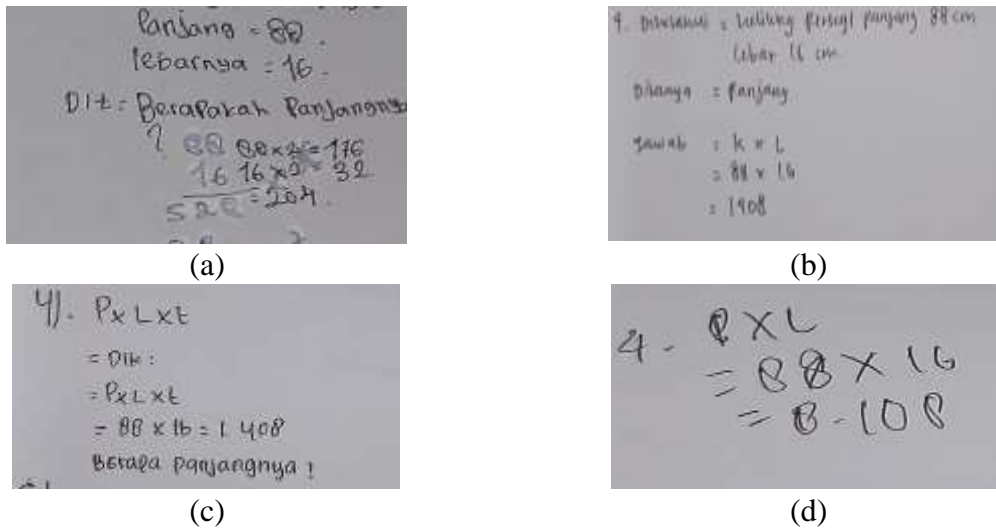 Panjang = 88.
lebarnya = 16.
Dit = Berapakah Panjangnya
? 88 88x2 = 176
16 16x2 = 32
528 = 204.
(a)
4. Diketahui : keliling Persegi panjang 88 cm
lebar 16 cm
Ditanya : Panjang
Jawab : K x L
= 88 x 16
= 1408
(b)
4). PxLxt
= Dik :
= PxLxt
= 88 x 16 = 1.408
Berapa panjangnya ?
(c)
4. P X L
= 88 X 16
= 8.108
(d)